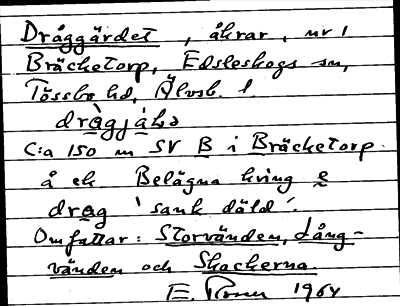 Dråggärdet, åkrar, nr 1
Bräcketorp, Edsleskogs sn,
Tössbo hd, Älvsb. l.
dràgjáḷə
C:a 150 m SV B i Bräcketorp.
å ek. Belägna kring e
drag 'sank däld'.
Omfattar: Storvänden, Lång-
vänden och Skackerna.
E. 1964